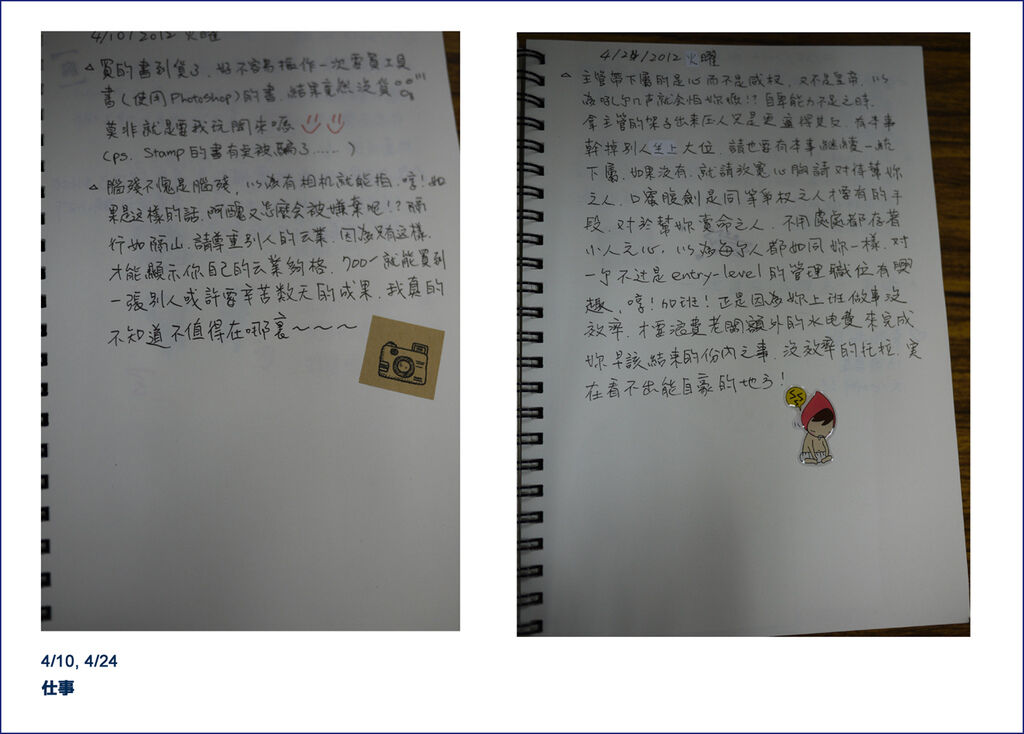 4/10/2012 火曜
△ 買的書到貨了, 好不容易振作一次要買工具
書(使用Photoshop)的書, 結果竟然沒貨
莫非就是要我玩開來嗎
(ps. Stamp的書有夠被騙了......)
△ 腦殘不愧是腦殘, 以為有相机就能拍, 哼! 如
果是這樣的話, 阿醜又怎麼会被嫌棄呢!? 隔
行如隔山, 請尊重別人的专業, 因為只有這樣,
才能顯示你自己的专業夠格, 700一就能買到
一張別人或許要辛苦数天的成果, 我真的
不知道不值得在哪裏~~~~
4/24/2012 火曜
△ 主管帶下屬的是心而不是威权, 又不是皇帝, 以
為吼个几声就会怕妳嗎!? 自身能力不足之時,
拿主管的架子出來压人只是更適得其反, 有本事
幹掉別人坐上大位, 請也要有本事継續一統
下屬, 如果沒有, 就請放寬心胸請对待幫妳
之人, 口蜜腹劍是同等爭权之人才要有的手
段, 对於幫妳賣命之人, 不用處處都存著
小人之心, 以為每个人都如同妳一樣, 对
一个不过是entry-level的管理職位有興
趣, 哼! 加班! 正是因為妳上班做事沒
效率, 才要浪費老闆額外的水电費來完成
妳早該結束的份內之事, 沒效率的托拉, 実
在看不出能自豪的地方!
4/10, 4/24
仕事